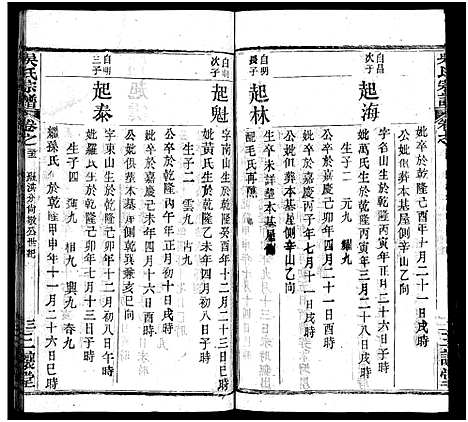 妣卒於乾隆己酉年十月二十一日戌時
公妣俱葬本基屋側辛山乙向
自昌次子
起海
字名山生於乾隆丙寅年正月二十六日
妣萬氏生於乾隆丙寅年三月二十八日
公卒於嘉慶丙子年七月十一日
公妣俱葬本基屋側辛山乙向
生子二 元九 耀九
自明長子
起林
生卒未詳葬本基屋側
配毛氏再醮
自明次子
起魁
字南山生於乾隆癸酉年十二月二十三日戌時
妣黃氏生於乾隆癸未年十二月初八日子時
生子二 雲九 占九
公卒於嘉慶己未年四月十六日酉時
妣卒於乾隆丙午年正月初十日戌時
公妣俱葬本基屋側乾巽兼亥巳向
自明三子
起泰
字東山生於乾隆己卯年十二月初八日午時
妣羅氏生於乾隆己卯年七月十三日子時
生子四 蒲九 相九 興九 春九
繼孫氏生於乾隆甲申年十一月二十六日巳時
吳氏宗譜
卷之
三讓堂